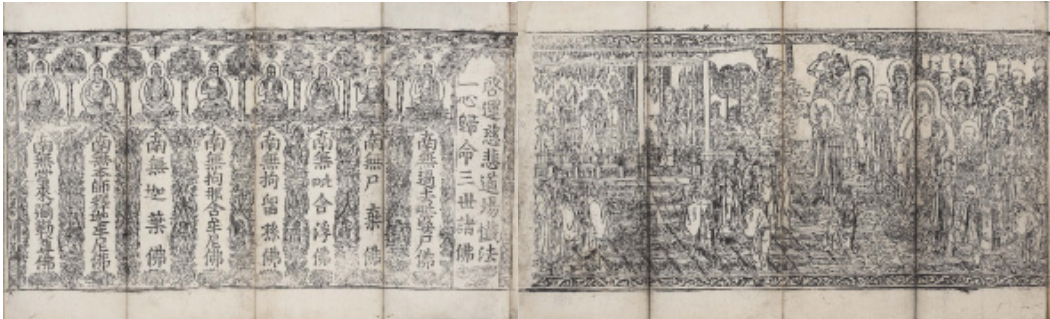 啓運慈悲道場懺法
一心歸命三世諸佛
南無過去毗婆尸佛
南無尸棄佛
南無毗舍浮佛
南無拘留孫佛
南無拘那含牟尼佛
南無迦葉佛
南無本師釋迦牟尼佛
南無當來彌勒尊佛